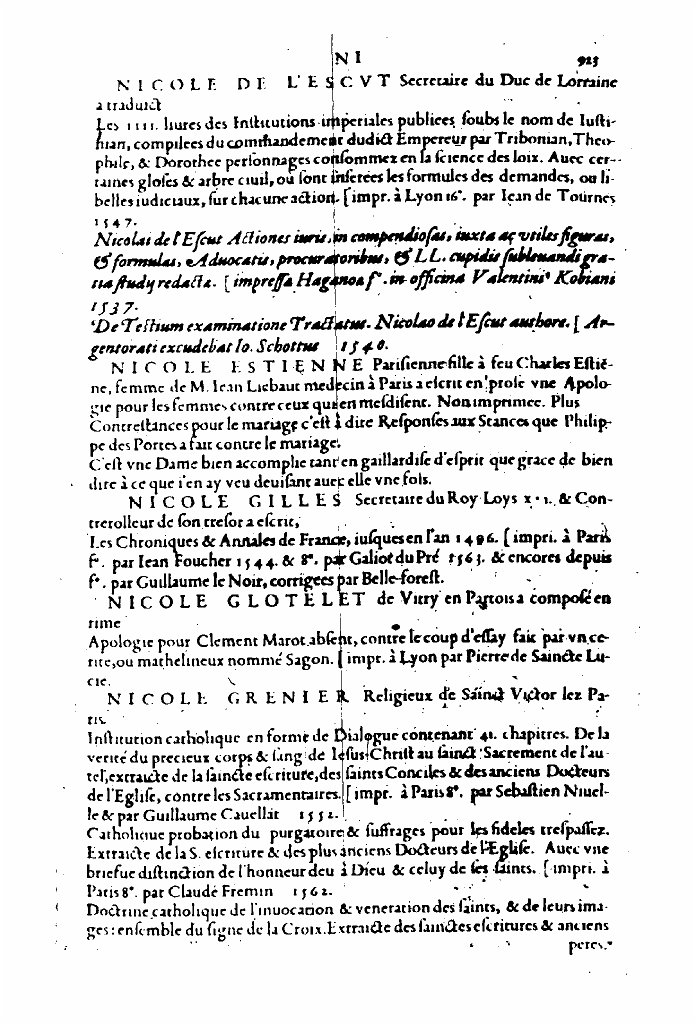 NI 923
NICOLE DE L'ESCVT Secretaire du Duc de Lorraine
a traduict
Les IIII. liures des Institutions imperiales publiees soubs le nom de Iusti-
nian, compilees du commandement dudict Empereur par Tribonian, Theo-
phile, & Dorothee personnages consommez en la science des loix. Auec cer-
taines gloses & arbre ciuil, ou sont inserees les formules des demandes, ou li-
belles iudiciaux, sur chacune action. [impr. à Lyon 16°. par Iean de Tournes
1547.
Nicolai de l'Escut Actiones iuris, in compendiosas, iuxta ac vtiles figuras,
& formulas, Aduocatis, procuratoribus, & LL. cupidis subleuandi gra-
tia studij redactæ. [ impressa Haganoa f°. in officina Valentini Kobiani
1537.
De Testium examinatione Tractatus. Nicolao de l'Escut authore. [ Ar-
gentorati excudebat Io. Schottus 1540.
NICOLE ESTIENNE Parisienne fille à feu Charles Estié-
ne, femme de M. Iean Liebaut medecin à Paris a escrit en prose vne Apolo-
gie pour les femmes contre ceux qui en mesdisent. Non imprimee. Plus
Contrestances pour le mariage c'est à dire Responses aux Stances que Philip-
pe des Portes a fait contre le mariage.
C'est vne Dame bien accomplie tant en gaillardise d'esprit que grace de bien
dire à ce que i'en ay veu deuisant auec elle vne fois.
NICOLE GILLES Secretaire du Roy Loys x.i. & Con-
trerolleur de son tresor a escrit,
Les Chroniques & Annales de France, iusques en l'an 1496. [ impri. à Paris
f°. par Iean Foucher 1544. & 8°. par Galiot du Pré 1563. & encores depuis
f°. par Guillaume le Noir, corrigees par Belle-forest.
NICOLE GLOTELET de Vitry en Partois a composé en
rime
Apologie pour Clement Marot absent, contre le coup d'essay faic par vn ce-
rite, ou mathelineux nommé Sagon. [ impr. à Lyon par Pierre de Saincte Lu-
cie.
NICOLE GRENIER Religieux de Sainct Victor lez Pa-
ris.
Institution catholique en forme de Dialogue contenant 41. chapitres. De la
verité du precieux corps & sang de Iesus Christ au sainct Sacrement de l'au-
tel, extraicte de la saincte escriture, des saints Conciles & des anciens Docteurs
de l'Eglise, contre les Sacramentaires. [ impr. à Paris 8°. par Sebastien Niuel-
le & par Guillaume Cauellat 1552.
Catholique probation du purgatoire & suffrages pour les fideles trespassez.
Extraicte de la S. escriture & des plus anciens Docteurs de l'Eglise. Auec vne
briefue distinction de l'honneur deu à Dieu & celuy de ses saints. [ impri. à
Paris 8°. par Claude Fremin 1562.
Doctrine catholique de l'inuocation & veneration des saints, & de leurs ima-
ges: ensemble du signe de la Croix. Extraicte des sainctes escritures & anciens
peres.